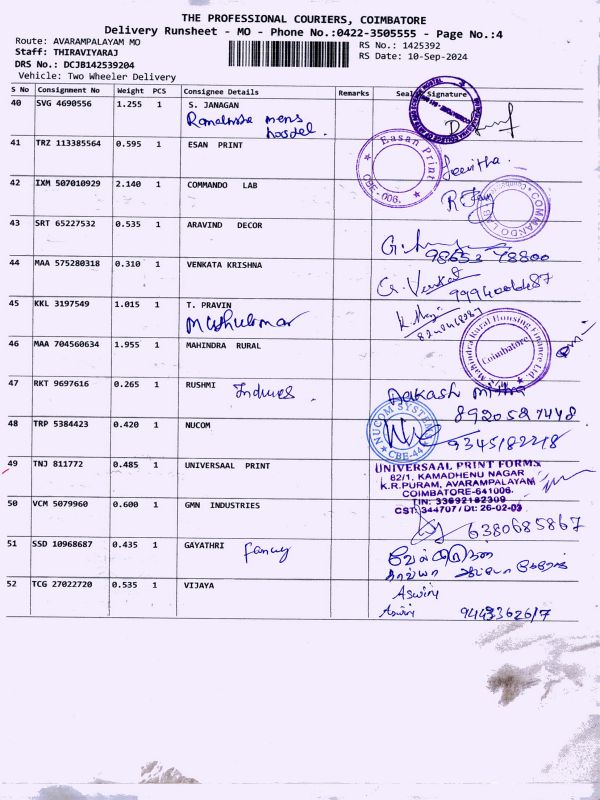 THE PROFESSIONAL COURIERS, COIMBATORE
Delivery Runsheet - MO - Phone No.:0422-3505555 - Page No.:4
Route: AVARAMPALAYAM MO
RS No.: 1425392
Staff: THIRAVIYARAJ
RS Date: 10-Sep-2024
DRS No.: DCJB142539204
Vehicle: Two Wheeler Delivery
S No Consignment No Weight PCS Consignee Details Remarks Seal Signature
40 SVG 4690556 1.255 1 S. JANAGAN
mens hostel.
41 TRZ 113385564 0.595 1 ESAN PRINT
Easan Print
CBE-006.
42 IXM 507010929 2.140 1 COMMANDO LAB
COMMANDO LAB
43 SRT 65227532 0.535 1 ARAVIND DECOR
98653 78800
44 MAA 575280318 0.310 1 VENKATA KRISHNA
G. Venkat
45 KKL 3197549 1.015 1 T. PRAVIN
Muthukumar
46 MAA 704560634 1.955 1 MAHINDRA RURAL
Mahindra Rural Housing Finance Ltd.
Coimbatore
47 RKT 9697616 0.265 1 RUSHMI
Aakash mitra
8920527448
48 TRP 5384423 0.420 1 NUCOM
NUCOM SYSTEM
CBE-44
9345182218
49 TNJ 811772 0.485 1 UNIVERSAAL PRINT
UNIVERSAAL PRINT FORMS
82/1, KAMADHENU NAGAR
K.R.PURAM, AVARAMPALAYAM
COIMBATORE-641006.
TIN: 33692182306
CST: 344707 / Dt: 26-02-03
50 VCM 5079960 0.600 1 GMN INDUSTRIES
6380685867
51 SSD 10968687 0.435 1 GAYATHRI
Fancy
52 TCG 27022720 0.535 1 VIJAYA
Aswini
Aswini